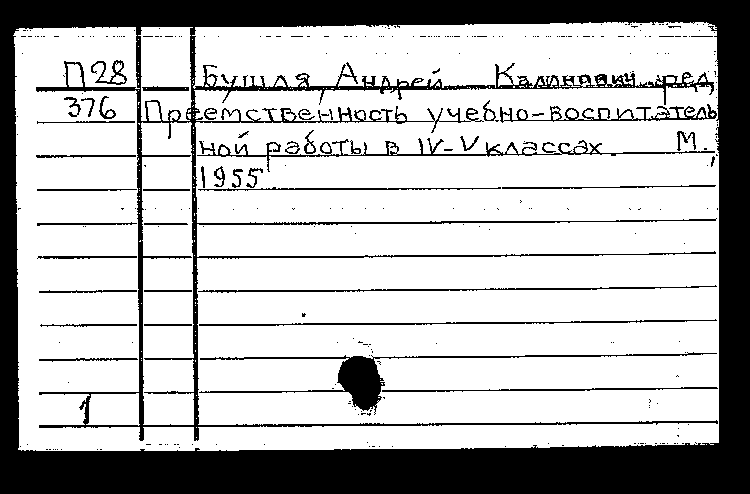 П28 Бушля, Андрей Калинович ред.
376 Преемственность учебно-воспитатель
ной работы в IV-V классах. М.,
1955
1